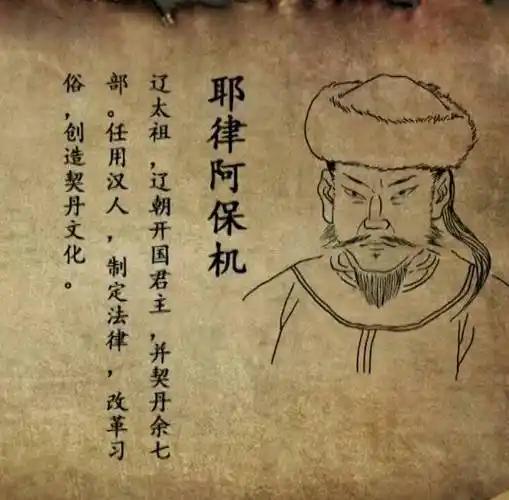 耶律阿保机
辽太祖，辽朝开国君主，并契丹余七
部。任用汉人，制定法律，改革习
俗，创造契丹文化。